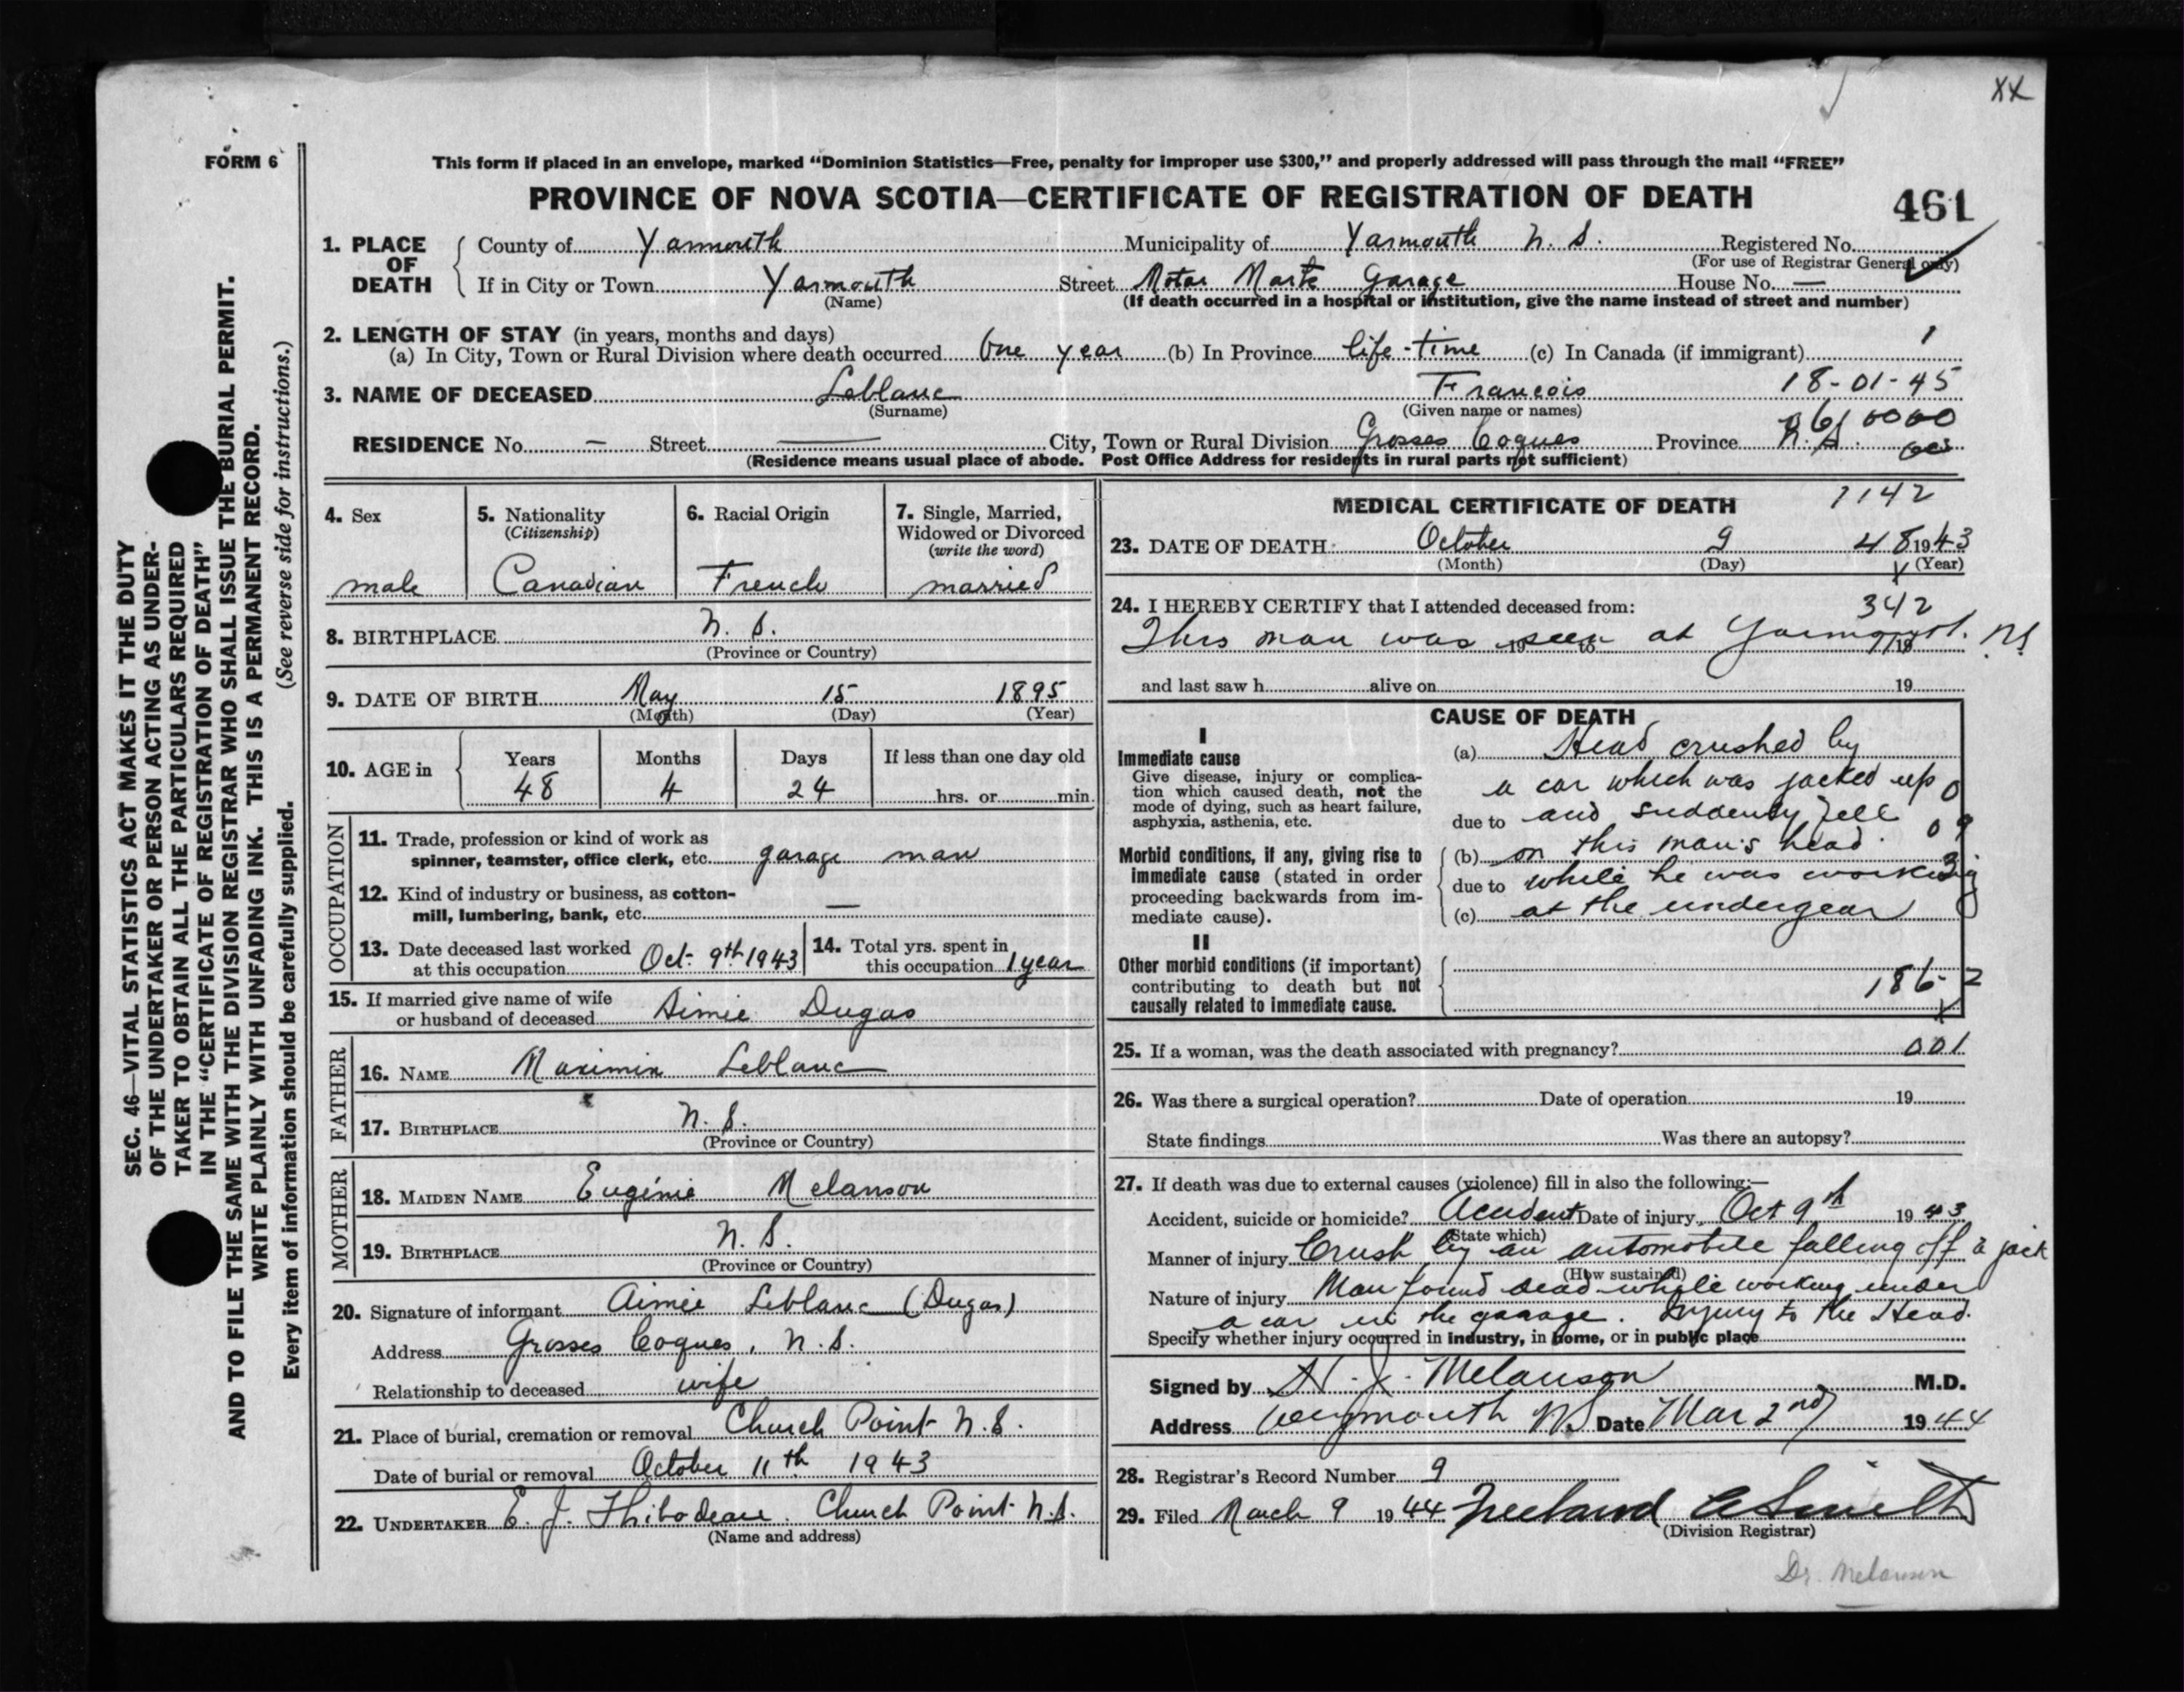 XX
FORM 6
This form if placed in an envelope, marked “Dominion Statistics—Free, penalty for improper use $300,” and properly addressed will pass through the mail “FREE”
PROVINCE OF NOVA SCOTIA—CERTIFICATE OF REGISTRATION OF DEATH
461
SEC. 46—VITAL STATISTICS ACT MAKES IT THE DUTY
OF THE UNDERTAKER OR PERSON ACTING AS UNDER-
TAKER TO OBTAIN ALL THE PARTICULARS REQUIRED
IN THE “CERTIFICATE OF REGISTRATION OF DEATH”
AND TO FILE THE SAME WITH THE DIVISION REGISTRAR WHO SHALL ISSUE THE BURIAL PERMIT.
WRITE PLAINLY WITH UNFADING INK. THIS IS A PERMANENT RECORD.
Every item of information should be carefully supplied. (See reverse side for instructions.)
1. PLACE OF DEATH
County of Yarmouth Municipality of Yarmouth N. S. Registered No.
(For use of Registrar General only)
If in City or Town Yarmouth Street Motor Marte Garage House No. —
(Name) (If death occurred in a hospital or institution, give the name instead of street and number)
2. LENGTH OF STAY (in years, months and days) 1
(a) In City, Town or Rural Division where death occurred One year (b) In Province life-time (c) In Canada (if immigrant)
3. NAME OF DECEASED Leblanc Francois 18-01-45
(Surname) (Given name or names)
RESIDENCE No. — Street — City, Town or Rural Division Grosses Coques Province N. S.
(Residence means usual place of abode. Post Office Address for residents in rural parts not sufficient)
4. Sex
male
5. Nationality
(Citizenship)
Canadian
6. Racial Origin
French
7. Single, Married,
Widowed or Divorced
(write the word)
married
8. BIRTHPLACE N. S.
(Province or Country)
9. DATE OF BIRTH May 15 1895
(Month) (Day) (Year)
10. AGE in
Years Months Days If less than one day old
48 4 24 hrs. or min.
OCCUPATION
11. Trade, profession or kind of work as
spinner, teamster, office clerk, etc. garage man
12. Kind of industry or business, as cotton-
mill, lumbering, bank, etc. —
13. Date deceased last worked
at this occupation Oct. 9th 1943
14. Total yrs. spent in
this occupation 1 year
15. If married give name of wife
or husband of deceased Aimie Dugas
FATHER
16. NAME Maximin Leblanc
17. BIRTHPLACE N. S.
(Province or Country)
MOTHER
18. MAIDEN NAME Eugénie Melanson
19. BIRTHPLACE N. S.
(Province or Country)
20. Signature of informant Aimée Leblanc (Dugas)
Address Grosses Coques, N. S.
Relationship to deceased wife
21. Place of burial, cremation or removal Church Point N. S.
Date of burial or removal October 11th 1943
22. UNDERTAKER E. J. Thibodeau Church Point N. S.
(Name and address)
MEDICAL CERTIFICATE OF DEATH 1142
23. DATE OF DEATH October 9 48 1943
(Month) (Day) (Year)
24. I HEREBY CERTIFY that I attended deceased from: 342
This man was seen at Yarmouth. NS
19 to 19
and last saw h alive on 19
CAUSE OF DEATH
I
Immediate cause
Give disease, injury or complica-
tion which caused death, not the
mode of dying, such as heart failure,
asphyxia, asthenia, etc.
Morbid conditions, if any, giving rise to
immediate cause (stated in order
proceeding backwards from im-
mediate cause).
(a) Head crushed by
a car which was jacked up
due to and suddenly fell
(b) on this man's head
due to while he was working
(c) at the undergear
II
Other morbid conditions (if important)
contributing to death but not
causally related to immediate cause.
186-2
25. If a woman, was the death associated with pregnancy? 001
26. Was there a surgical operation? Date of operation 19
State findings Was there an autopsy?
27. If death was due to external causes (violence) fill in also the following:—
Accident, suicide or homicide? Accident Date of injury Oct 9th 1943
(State which)
Manner of injury Crush by an automobile falling off a jack
(How sustained)
Nature of injury Man found dead while working under
a car in the garage. Injury to the Head.
Specify whether injury occurred in industry, in home, or in public place
Signed by J. Melanson M.D.
Address Weymouth NS Date Mar 2nd 1944
28. Registrar's Record Number 9
29. Filed March 9 1944 Freeland A Smith
(Division Registrar)
Dr. Melanson